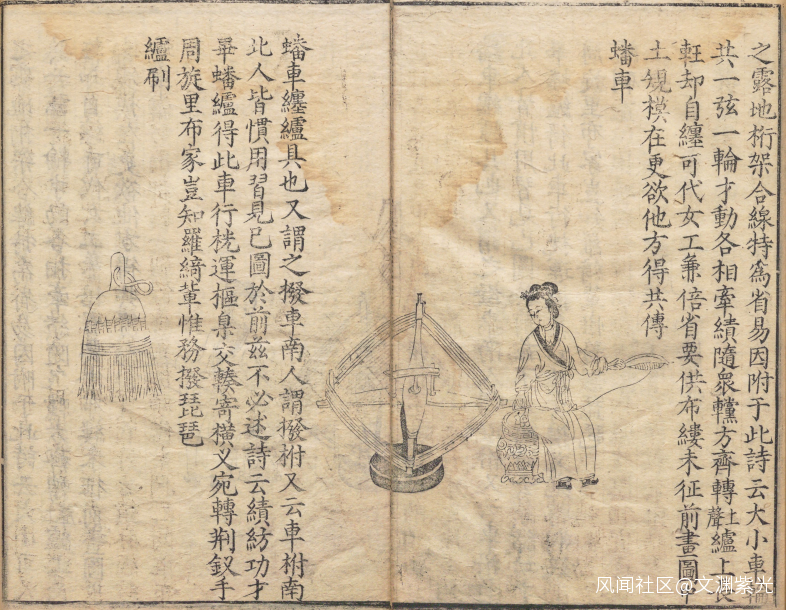 之露地桁架合線特為省易因附于此詩云大小車
共一弦一輪才動各相牽績隨衆方齊轉上聲纑上
軖却自纏可代女工兼倍省要供布縷未征前畫圖中
土規模在更欲他方得共傳
蟠車
蟠車纏纑具也又謂之撥車南人謂撥柎又云車柎南
北人皆慣用習見已圖於前兹不必述詩云績紡功才
畢蟠纑得此車行桄運樞臬交輳寄橫乂宛轉荆釵手
周旋里布家豈知羅綺輩惟務撥琵琶
纑刷
风闻社区@文渊紫光